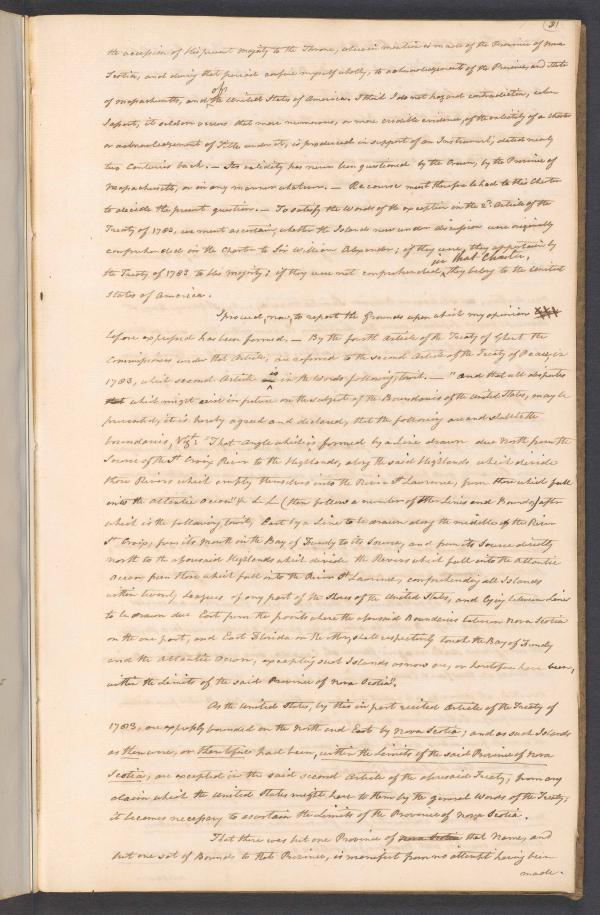 31
the accession of his present majesty to the Throne, wherein mention is made of the Province of Nova
Scotia, and during that period confine myself wholly, to acknowledgements of the Province, and State
of massachusetts, and of the United States of America. I think I do not hazard contradiction, when
I assert, it seldom occurs that more numerous, or more credible evidence, of the validity of a charter
or acknowledgement of Title under it, is produced in support of an Instrument, dated nearly
two Centuries back. — Its validity has never been questioned by the Crown, by the Province of
Massachusetts, or in any manner whatever. — Recourse must therefore be had to this Charter
to decide the present question. — To satisfy the words of the exception in the 2d. Article of the
Treaty of 1783, we must ascertain, whether the Islands now under discussion were originally
comprehended in the Charter to Sir William Alexander; if they were, they appertain by
in that Charter,
the Treaty of 1783 to his majesty; if they were not comprehended, they belong to the United
States of America.
I proceed, now, to report the Grounds upon which my opinion
before expressed has been formed. — By the fourth Article of the Treaty of Ghent the
Commissioners under that Article, are referred to the second Article of the Treaty of Peace, in
1783, which second Article is in the Words following towit. — "And that all disputes
which might arise in future on the subject of the Boundaries of the United States, may be
prevented, it is hereby agreed and declared, that the following are and shall be the
boundaries, Vizt: "That Angle which is formed by a Line drawn due North from the
Source of the St Croix River to the Highlands, along the said Highlands which divide
those Rivers which empty themselves into the River St Lawrence, from those which fall
into the Atlantic Ocean" &c &c (then follow a number of other Lines and Bounds) after
which is the following towit, East by a Line to be drawn along the middle of the River
St Croix, from its Mouth in the Bay of Fundy to its Source, and from its Source directly
North to the aforesaid Highlands which divide the Rivers which fall into the Atlantic
Ocean from those which fall into the River St Lawrence, comprehending all Islands
within twenty Leagues of any part of the Shores of the United States, and lying between Lines
to be drawn due East from the points where the aforesaid Boundaries between Nova Scotia
on the one part, and East Florida on the other, shall respectively touch the Bay of Fundy
and the Atlantic Ocean, excepting such Islands as now are, or heretofore have been,
within the limits of the said Province of Nova Scotia".
As the United States, by this in part recited Article of the Treaty of
1783, are expressly bounded on the North and East by Nova Scotia; and as such Islands
as then were, or theretofore had been, within the limits of the said Province of Nova
Scotia, are excepted in the said second Article of the aforesaid Treaty, from any
claim which the United States might have to them by the general Words of the Treaty;
it becomes necessary to ascertain the Limits of the Province of Nova Scotia.
That there was but one Province of Nova Scotia that Name, and
but one set of Bounds to that Province, is manifest from no attempt having been
made.